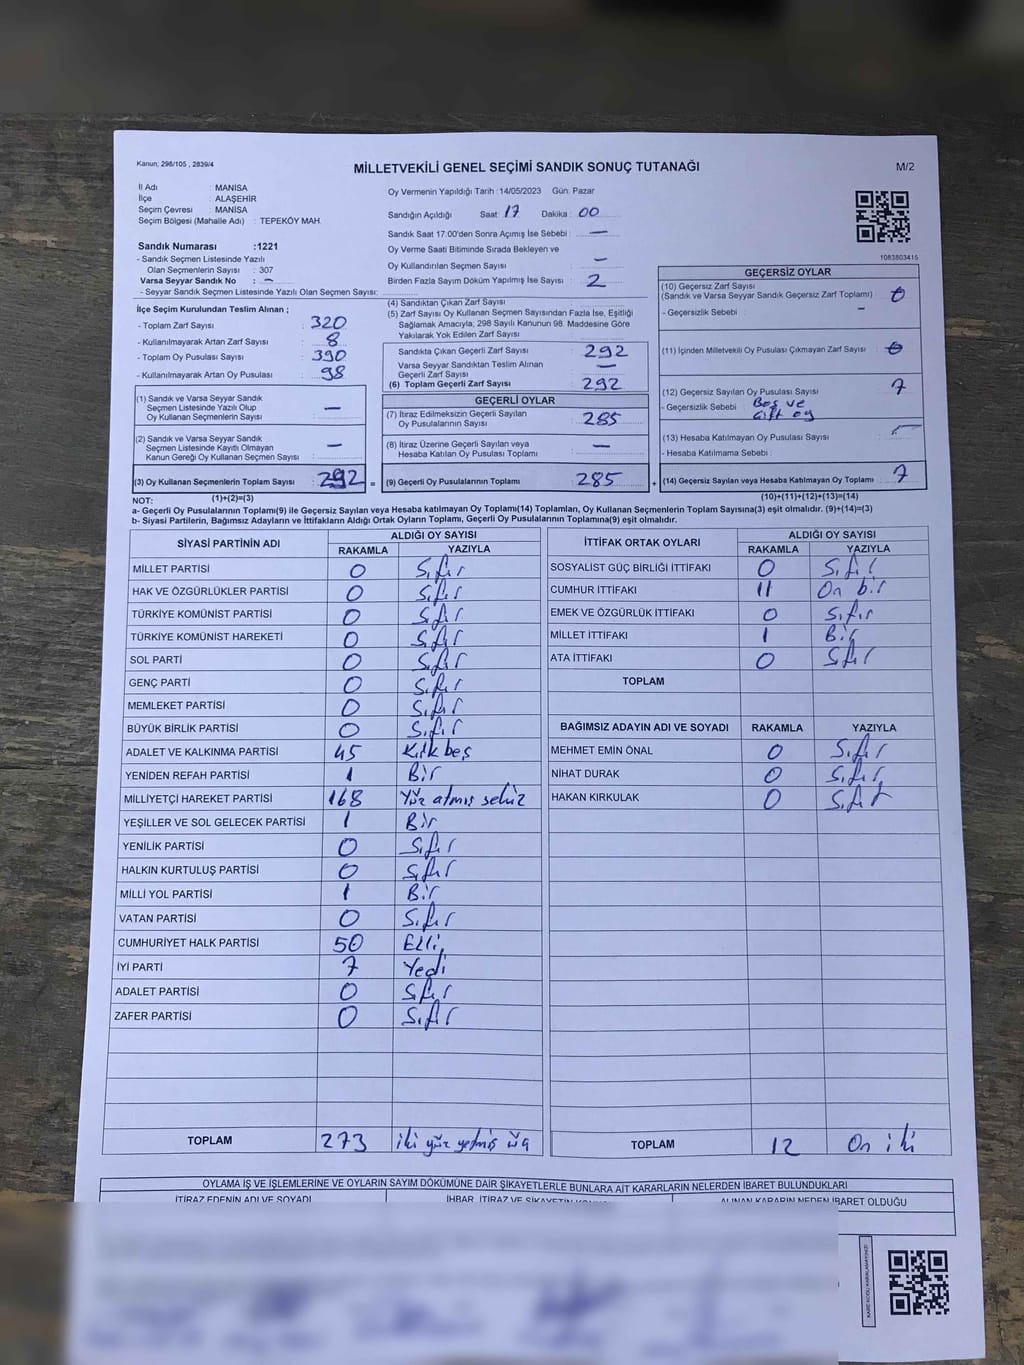 Kanun; 298/105 , 2839/4
MİLLETVEKİLİ GENEL SEÇİMİ SANDIK SONUÇ TUTANAĞI
M/2
İl Adı : MANİSA
İlçe : ALAŞEHİR
Seçim Çevresi : MANİSA
Seçim Bölgesi (Mahalle Adı) : TEPEKÖY MAH.
Sandık Numarası :1221
- Sandık Seçmen Listesinde Yazılı
Olan Seçmenlerin Sayısı : 307
Varsa Seyyar Sandık No : -
- Seyyar Sandık Seçmen Listesinde Yazılı Olan Seçmen Sayısı:
Oy Vermenin Yapıldığı Tarih : 14/05/2023 Gün: Pazar
Sandığın Açıldığı Saat: 17 Dakika : 00
Sandık Saat 17:00'den Sonra Açımış İse Sebebi : —
Oy Verme Saati Bitiminde Sırada Bekleyen ve
Oy Kullandırılan Seçmen Sayısı : —
Birden Fazla Sayım Döküm Yapılmış İse Sayısı : 2
1083803415
İlçe Seçim Kurulundan Teslim Alınan ;
- Toplam Zarf Sayısı : 320
- Kullanılmayarak Artan Zarf Sayısı : 8
- Toplam Oy Pusulası Sayısı : 390
- Kullanılmayarak Artan Oy Pusulası : 98
(1) Sandık ve Varsa Seyyar Sandık
Seçmen Listesinde Yazılı Olup
Oy Kullanan Seçmenlerin Sayısı : —
(2) Sandık ve Varsa Seyyar Sandık
Seçmen Listesinde Kayıtlı Olmayan
Kanun Gereği Oy Kullanan Seçmen Sayısı : —
(3) Oy Kullanan Seçmenlerin Toplam Sayısı : 292 =
(4) Sandıktan Çıkan Zarf Sayısı :
(5) Zarf Sayısı Oy Kullanan Seçmen Sayısından Fazla İse, Eşitliği
Sağlamak Amacıyla; 298 Sayılı Kanunun 98. Maddesine Göre
Yakılarak Yok Edilen Zarf Sayısı :
Sandıkta Çıkan Geçerli Zarf Sayısı : 292
Varsa Seyyar Sandıktan Teslim Alınan
Geçerli Zarf Sayısı : —
(6) Toplam Geçerli Zarf Sayısı : 292
GEÇERLİ OYLAR
(7) İtiraz Edilmeksizin Geçerli Sayılan
Oy Pusulalarının Sayısı : 285
(8) İtiraz Üzerine Geçerli Sayılan veya
Hesaba Katılan Oy Pusulası Toplamı : —
(9) Geçerli Oy Pusulalarının Toplamı : 285 +
GEÇERSİZ OYLAR
(10) Geçersiz Zarf Sayısı
(Sandık ve Varsa Seyyar Sandık Geçersiz Zarf Toplamı) : 0
- Geçersizlik Sebebi : -
(11) İçinden Milletvekili Oy Pusulası Çıkmayan Zarf Sayısı : 0
(12) Geçersiz Sayılan Oy Pusulası Sayısı : 7
- Geçersizlik Sebebi : Boş ve
Çift oy
(13) Hesaba Katılmayan Oy Pusulası Sayısı :
- Hesaba Katılmama Sebebi :
(14) Geçersiz Sayılan veya Hesaba Katılmayan Oy Toplamı : 7
NOT: (1)+(2)=(3) (10)+(11)+(12)+(13)=(14)
a- Geçerli Oy Pusulalarının Toplamı(9) ile Geçersiz Sayılan veya Hesaba katılmayan Oy Toplamı(14) Toplamları, Oy Kullanan Seçmenlerin Toplam Sayısına(3) eşit olmalıdır. (9)+(14)=(3)
b- Siyasi Partilerin, Bağımsız Adayların ve İttifakların Aldığı Ortak Oyların Toplamı, Geçerli Oy Pusulalarının Toplamına(9) eşit olmalıdır.
SİYASİ PARTİNİN ADI ALDIĞI OY SAYISI
RAKAMLA YAZIYLA
MİLLET PARTİSİ 0 Sıfır
HAK VE ÖZGÜRLÜKLER PARTİSİ 0 Sıfır
TÜRKİYE KOMÜNİST PARTİSİ 0 Sıfır
TÜRKİYE KOMÜNİST HAREKETİ 0 Sıfır
SOL PARTİ 0 Sıfır
GENÇ PARTİ 0 Sıfır
MEMLEKET PARTİSİ 0 Sıfır
BÜYÜK BİRLİK PARTİSİ 0 Sıfır
ADALET VE KALKINMA PARTİSİ 45 Kırk beş
YENİDEN REFAH PARTİSİ 1 Bir
MİLLİYETÇİ HAREKET PARTİSİ 168 Yüz atmış sekiz
YEŞİLLER VE SOL GELECEK PARTİSİ 1 Bir
YENİLİK PARTİSİ 0 Sıfır
HALKIN KURTULUŞ PARTİSİ 0 Sıfır
MİLLİ YOL PARTİSİ 1 Bir
VATAN PARTİSİ 0 Sıfır
CUMHURİYET HALK PARTİSİ 50 Elli
İYİ PARTİ 7 Yedi
ADALET PARTİSİ 0 Sıfır
ZAFER PARTİSİ 0 Sıfır
TOPLAM 273 iki yüz yetmiş üç
İTTİFAK ORTAK OYLARI ALDIĞI OY SAYISI
RAKAMLA YAZIYLA
SOSYALİST GÜÇ BİRLİĞİ İTTİFAKI 0 Sıfır
CUMHUR İTTİFAKI 11 On bir
EMEK VE ÖZGÜRLÜK İTTİFAKI 0 Sıfır
MİLLET İTTİFAKI 1 Bir
ATA İTTİFAKI 0 Sıfır
TOPLAM
BAĞIMSIZ ADAYIN ADI VE SOYADI RAKAMLA YAZIYLA
MEHMET EMİN ÖNAL 0 Sıfır
NİHAT DURAK 0 Sıfır
HAKAN KIRKULAK 0 Sıfır
TOPLAM 12 On iki
OYLAMA İŞ VE İŞLEMLERİNE VE OYLARIN SAYIM DÖKÜMÜNE DAİR ŞİKAYETLERLE BUNLARA AİT KARARLARIN NELERDEN İBARET BULUNDUKLARI
İTİRAZ EDENİN ADI VE SOYADI İHBAR, İTİRAZ VE ŞİKAYETİN ALINAN KARARIN NEDEN İBARET OLDUĞU
KARE KODU KARALAMAYINIZ!